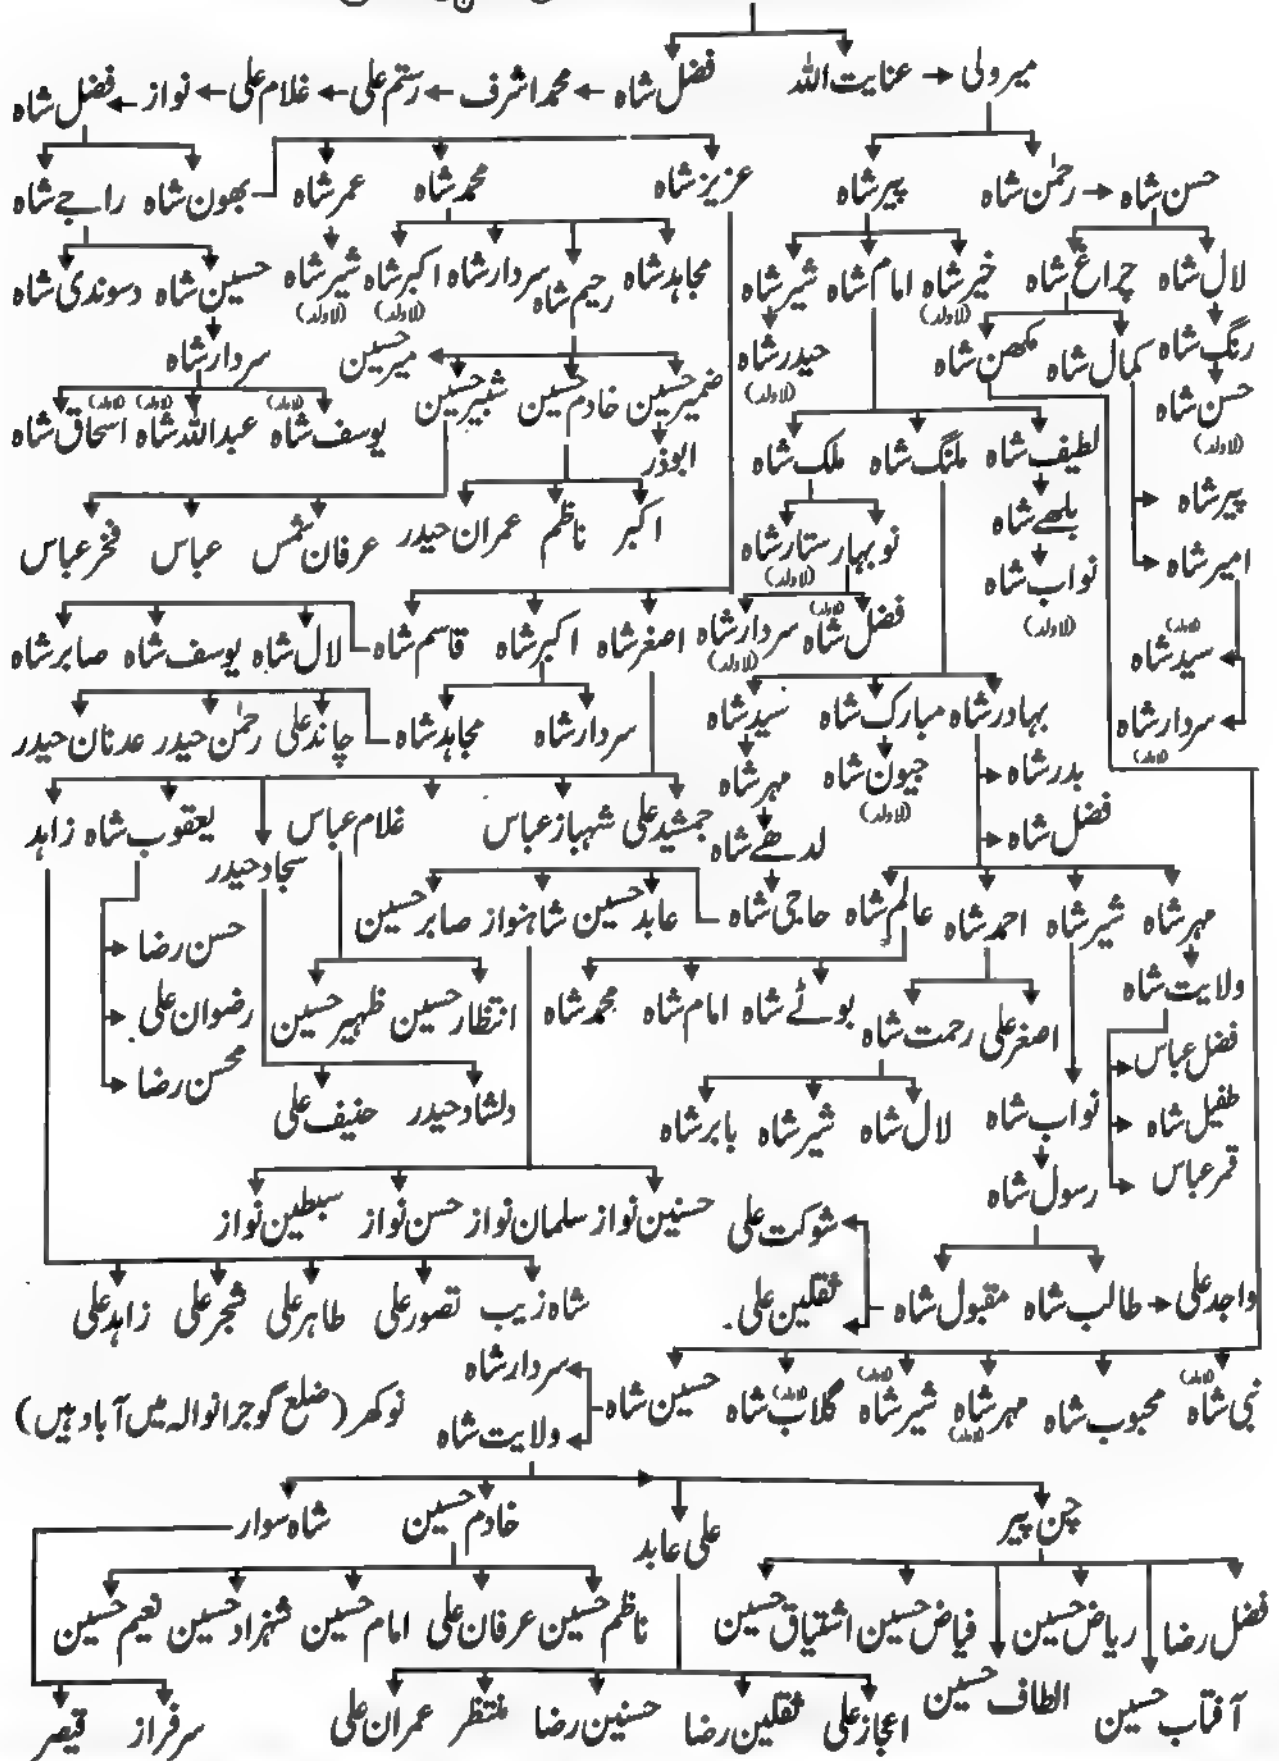 میر ولی عنایت اللہ فضل شاہ محمد اشرف رستم علی غلام علی نواز فضل شاہ
حسن شاہ رحمٰن شاہ پیر شاہ عزیز شاہ محمد شاہ عمر شاہ بھون شاہ راجے شاہ
لال شاہ چراغ شاہ خیر شاہ (لاولد) امام شاہ شیر شاہ مجاہد شاہ رحیم شاہ سردار شاہ اکبر شاہ (لاولد) شیر شاہ (لاولد) حسین شاہ دسوندی شاہ
رنگ شاہ کمال شاہ مکھن شاہ حیدر شاہ (لاولد) میر حسین سردار شاہ
حسن شاہ (لاولد) ضمیر حسین خادم حسین شبیر حسین
لطیف شاہ ملنگ شاہ ملک شاہ ابوذر یوسف شاہ (لاولد) عبداللہ شاہ (لاولد) اسحاق شاہ (لاولد)
پیر شاہ بلھے شاہ
امیر شاہ نواب شاہ (لاولد) نوبہار ستار شاہ (لاولد) اکبر ناظم عمران حیدر عرفان شمس عباس فخر عباس
سید شاہ (لاولد) فضل شاہ (لاولد) سردار شاہ (لاولد) اصغر شاہ اکبر شاہ قاسم شاہ لال شاہ یوسف شاہ صابر شاہ
سردار شاہ (لاولد) بہادر شاہ مبارک شاہ سید شاہ سردار شاہ مجاہد شاہ چاند علی رحمٰن حیدر عدنان حیدر
بدر شاہ جیون شاہ (لاولد) مہر شاہ
فضل شاہ لدھے شاہ جمشید علی شہباز عباس غلام عباس سجاد حیدر یعقوب شاہ زاہد
مہر شاہ شیر شاہ احمد شاہ عالم شاہ حاجی شاہ عابد حسین شاہنواز صابر حسین حسن رضا
ولایت شاہ اصغر علی رحمت شاہ بوٹے شاہ امام شاہ محمد شاہ انتظار حسین ظہیر حسین رضوان علی
فضل عباس محسن رضا
طفیل شاہ نواب شاہ لال شاہ شیر شاہ بابر شاہ دلشاد حیدر حنیف علی
قمر عباس رسول شاہ
شوکت علی حسنین نواز سلمان نواز حسن نواز سبطین نواز
واجد علی طالب شاہ مقبول شاہ ثقلین علی شاہ زیب تصور علی طاہر علی شجر علی زاہد علی
سردار شاہ
نبی شاہ (لاولد) محبوب شاہ مہر شاہ (لاولد) شیر شاہ (لاولد) گلاب شاہ (لاولد) حسین شاہ نوکھر (ضلع گوجرانوالہ میں آباد ہیں)
ولایت شاہ
چن پیر علی عابد خادم حسین شاہ سوار
فضل رضا ریاض حسین فیاض حسین اشتیاق حسین ناظم حسین عرفان علی امام حسین شہزاد حسین نعیم حسین
آفتاب حسین الطاف حسین اعجاز علی ثقلین رضا حسنین رضا منتظر عمران علی سرفراز قیصر